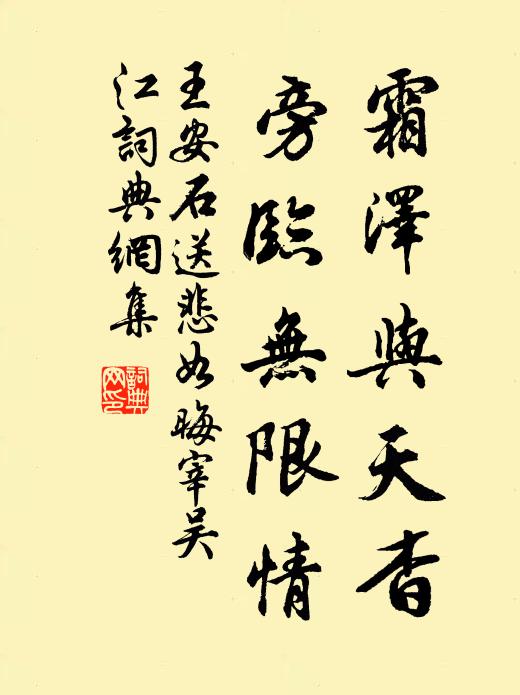 霜澤與天杳
旁臨無限情
王安石送悲如晦宰吳
江詞典網集
詞典
网印